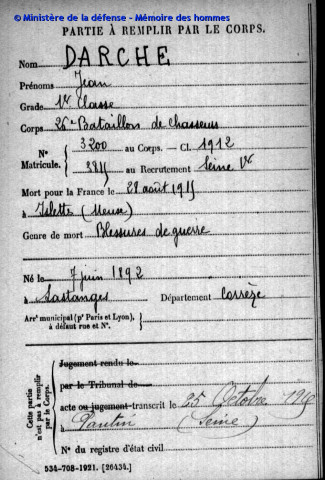 © Ministère de la défense - Mémoire des hommes
PARTIE À REMPLIR PAR LE CORPS.
Nom DARCHE
Prénoms Jean
Grade 1re Classe
Corps 26e Bataillon de Chasseurs
N° Matricule. 3200 au Corps. — Cl. 1912
au Recrutement Seine
Mort pour la France le 28 août 1915
à Islette (Meuse)
Genre de mort Blessures de guerre
Né le 7 juin 1892
à Département Corrèze
Arrt municipal (pr Paris et Lyon), à défaut rue et N°.
Cette partie n'est pas à remplir par le Corps.
Jugement rendu le
par le Tribunal de
acte ou jugement transcrit le 25 Octobre 1915
à Pantin (Seine)
N° du registre d'état civil
534-708-1921. [26434.]